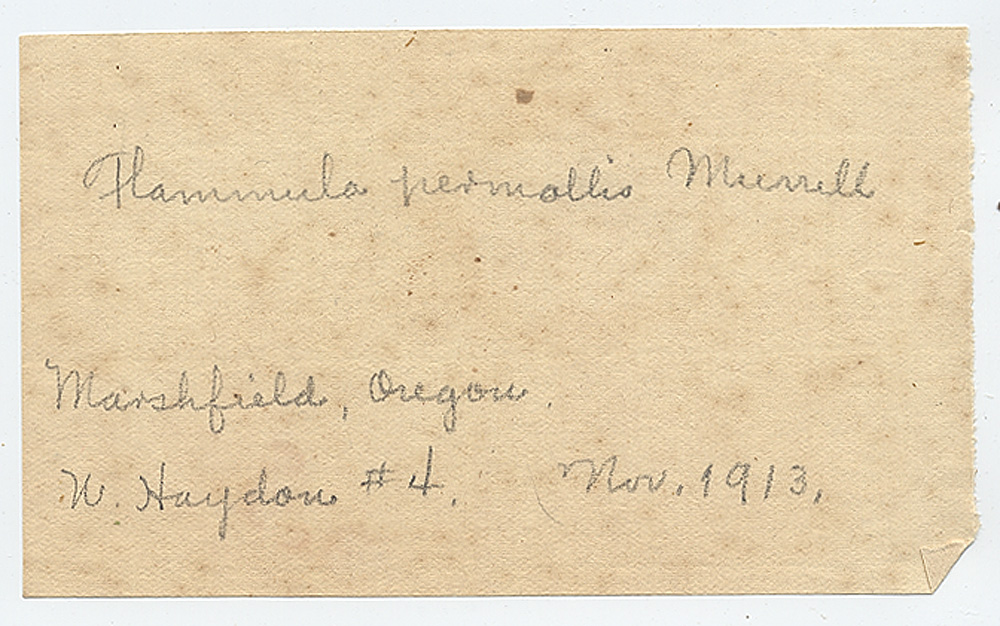 Flammula permollis Murrill
Marshfield, Oregon.
W. Haydon #4. Nov. 1913.